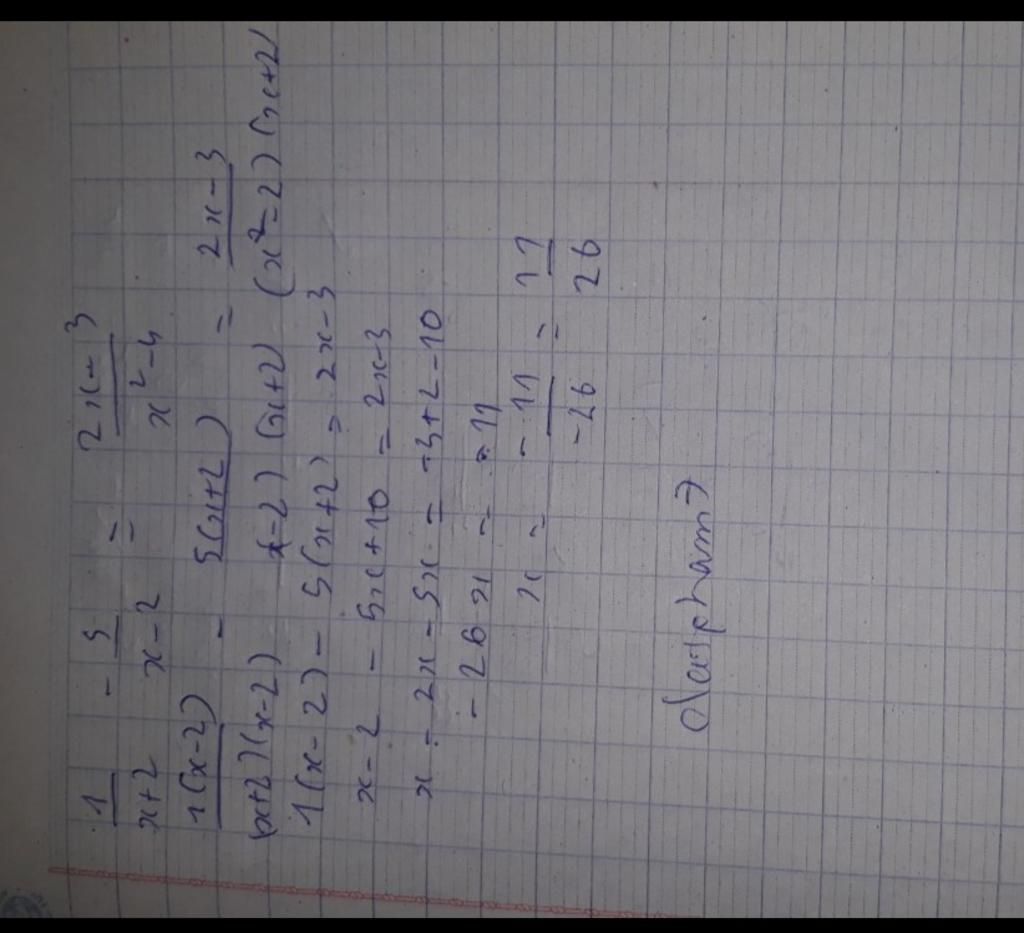 1/x+2 - 5/x-2 = 2x-3/x²-4
1(x-2)/(x+2)(x-2) - 5(x+2)/x-2)(x+2) = 2x-3/(x²=2)(x+2)
1(x-2)- 5(x+2) = 2x-3
x-2 - 5x+10 = 2x-3
x - 2x - 5x = -3+2-10
- 26 x = - 11
x = - 11/-26 = 11/26